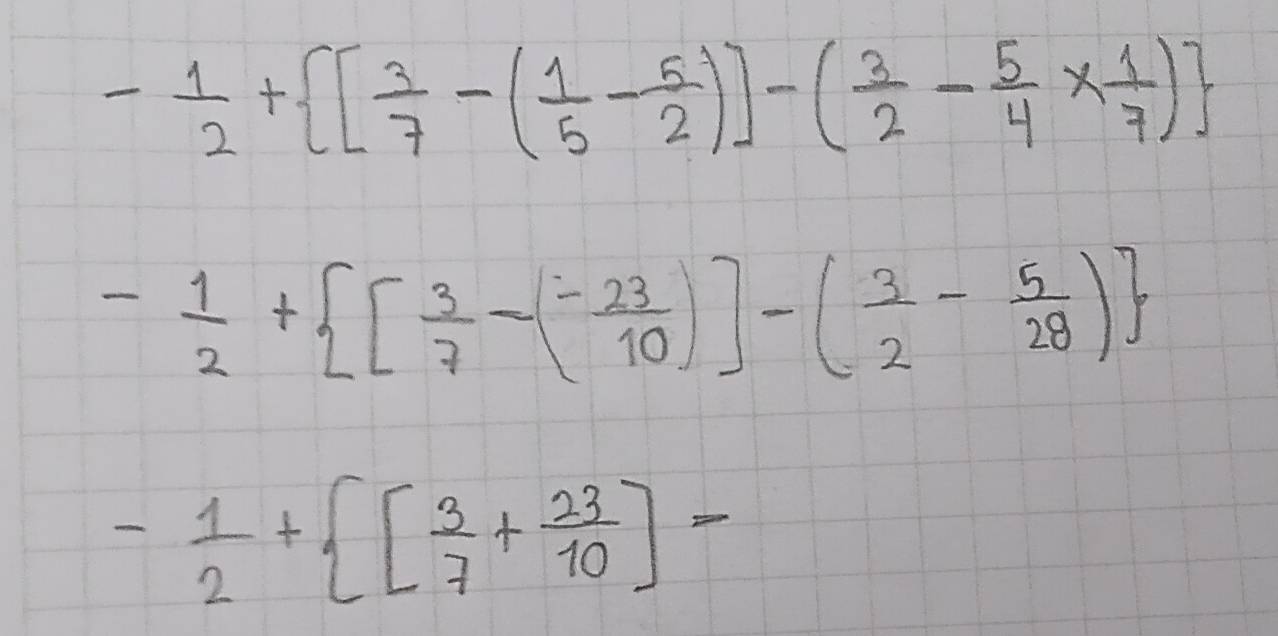 - 1/2 + {[3/7 - (1/5 - 5/2)] - (3/2 - 5/4 × 1/7)}
- 1/2 + {[3/7 - (- 23/10)] - (3/2 - 5/28)}
- 1/2 + {[3/7 + 23/10] -